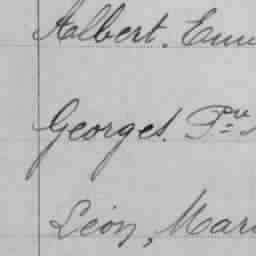 Albert. Em
Georges. Pre
Léon, Mar